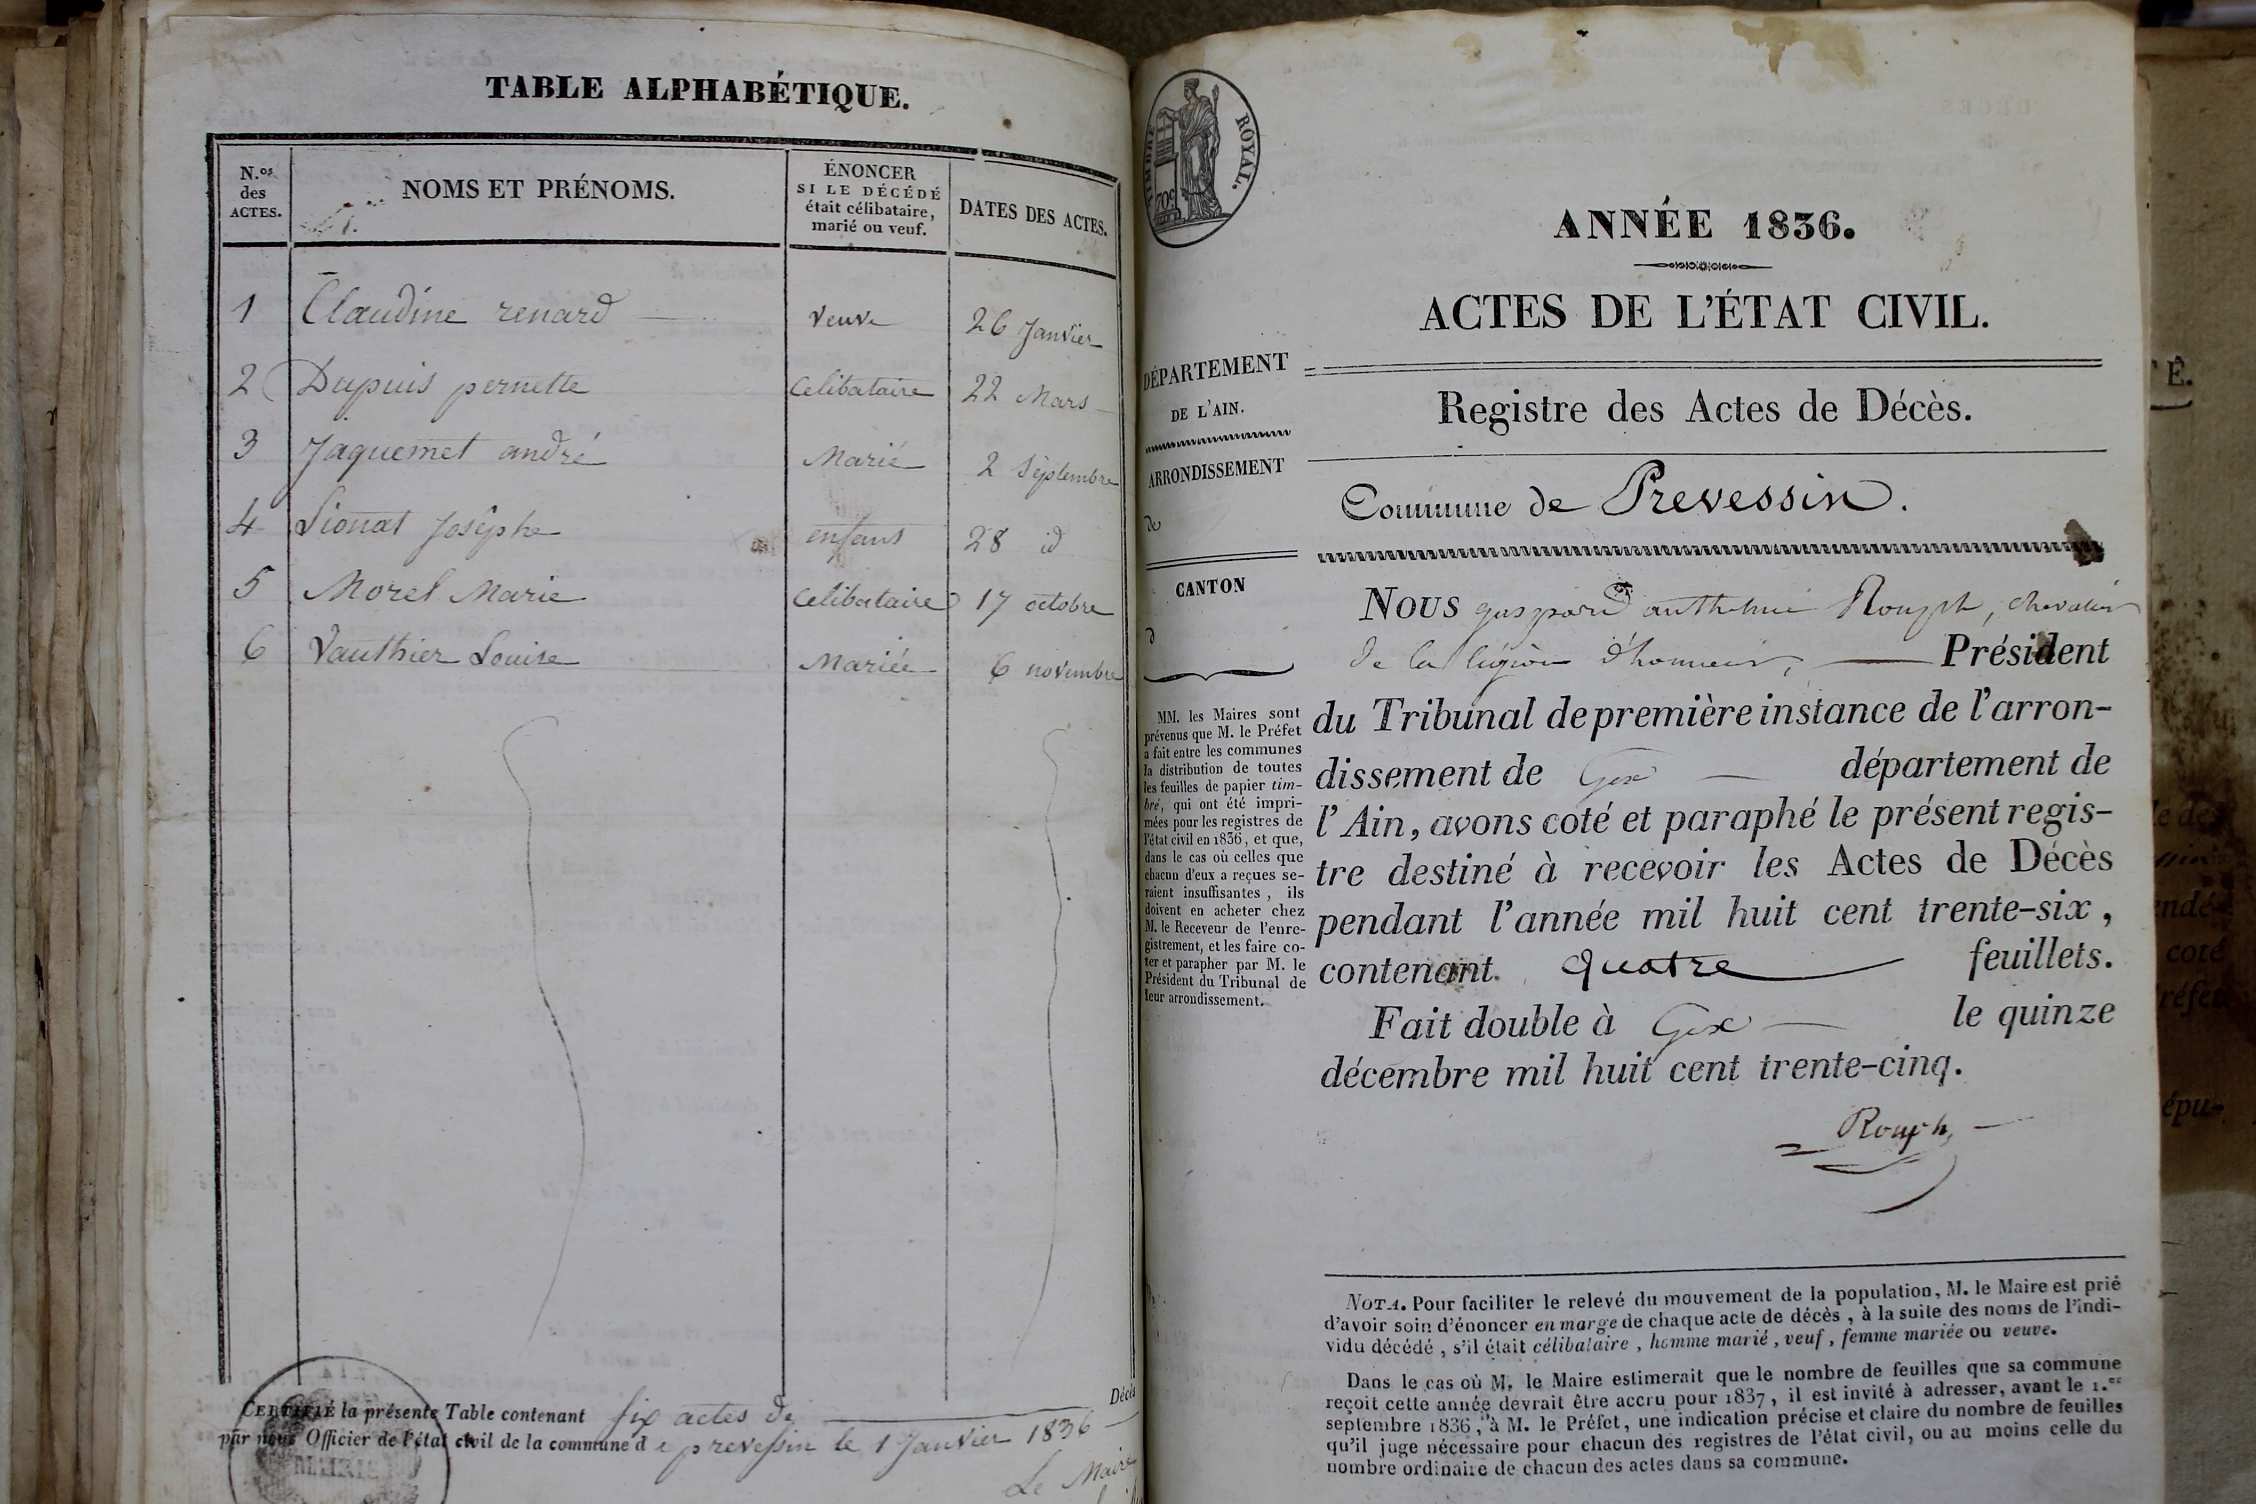 TABLE ALPHABÉTIQUE.
N.os des ACTES.
NOMS ET PRÉNOMS.
ÉNONCER
SI LE DÉCÉDÉ
était célibataire,
marié ou veuf.
DATES DES ACTES.
1 Claudine renard veuve 26 Janvier
2 Dupuis pernette Celibataire 22 Mars
3 Jaquemet andré Marié 2 Septembre
4 Lionat Josephe enfant 28 id
5 Morel Marie Celibataire 17 octobre
6 Vauthier Louise Mariée 6 novembre
CERTIFIÉ la présente Table contenant six actes de Décès
par nous Officier de l'état civil de la commune de prevessin le 1 Janvier 1836
Le Maire
MAIRIE
TIMBRE ROYAL.
70c
ANNÉE 1836.
ACTES DE L'ÉTAT CIVIL.
DÉPARTEMENT
DE L'AIN.
ARRONDISSEMENT
de
CANTON
d
MM. les Maires sont
prévenus que M. le Préfet
a fait entre les communes
la distribution de toutes
les feuilles de papier tim-
bré, qui ont été impri-
mées pour les registres de
l'état civil en 1836, et que,
dans le cas où celles que
chacun d'eux a reçues se-
raient insuffisantes, ils
doivent en acheter chez
M. le Receveur de l'enre-
gistrement, et les faire co-
ter et parapher par M. le
Président du Tribunal de
leur arrondissement.
Registre des Actes de Décès.
Commune de Prevessin.
NOUS gaspard anthelme Rouph, chevalier
de la légion d'honneur, Président
du Tribunal de première instance de l'arron-
dissement de Gex département de
l'Ain, avons coté et paraphé le présent regis-
tre destiné à recevoir les Actes de Décès
pendant l'année mil huit cent trente-six,
contenant quatre feuillets.
Fait double à Gex le quinze
décembre mil huit cent trente-cinq.
Rouph
NOTA. Pour faciliter le relevé du mouvement de la population, M. le Maire est prié
d'avoir soin d'énoncer en marge de chaque acte de décès, à la suite des noms de l'indi-
vidu décédé, s'il était célibataire, homme marié, veuf, femme mariée ou veuve.
Dans le cas où M. le Maire estimerait que le nombre de feuilles que sa commune
reçoit cette année devrait être accru pour 1837, il est invité à adresser, avant le 1.er
septembre 1836, à M. le Préfet, une indication précise et claire du nombre de feuilles
qu'il juge nécessaire pour chacun des registres de l'état civil, ou au moins celle du
nombre ordinaire de chacun des actes dans sa commune.